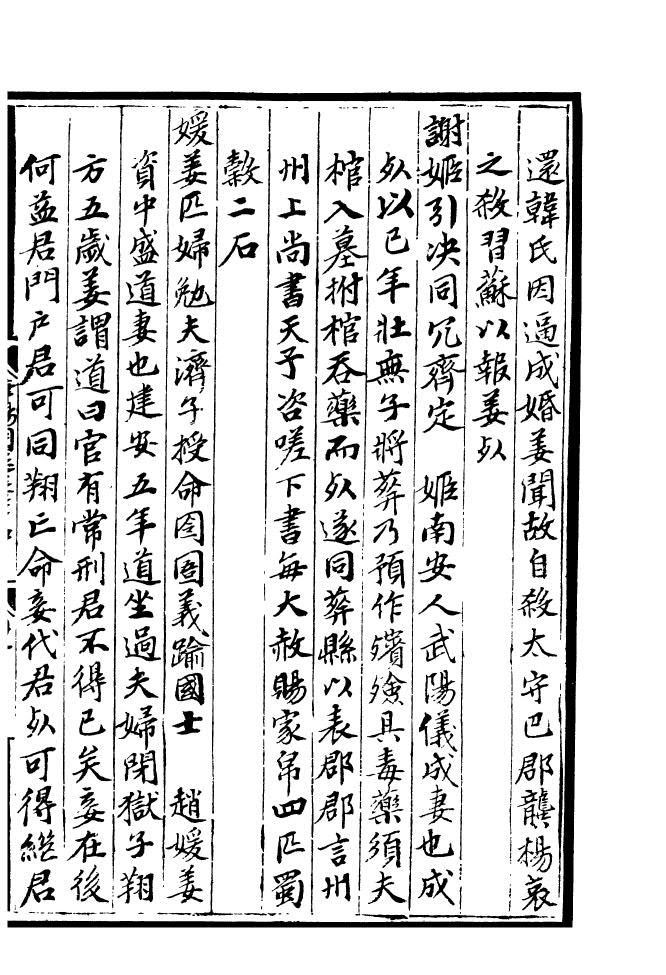 還韓氏因逼成婚姜聞故自殺太守巴郡龔楊哀
之殺習蘇以報姜死
謝姬引决同冗齊定　姬南安人武陽儀成妻也成
死以已年壯無子將葬乃預作殯殮具毒藥須夫
棺入墓拊棺吞藥而死遂同葬縣以表郡郡言州
州上尚書天子咨嗟下書每大赦賜家帛四匹蜀
穀二石
媛姜匹婦勉夫濟子授命囹圄義踰國士　趙媛姜
資中盛道妻也建安五年道坐過夫婦閉獄子翔
方五歲姜謂道曰官有常刑君不得已矣妾在後
何益君門戶君可同翔亡命妾代君死可得繼君